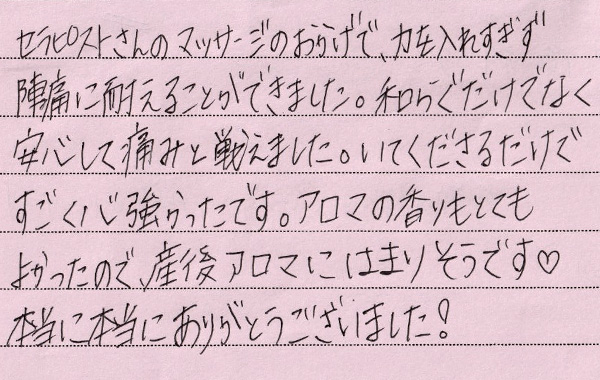 セラピストさんのマッサージのおかげで、力を入れすぎず
陣痛に耐えることができました。和らぐだけでなく
安心して痛みと戦えました。いてくださるだけで
すごく心強かったです。アロマの香りもとても
よかったので、産後アロマにはまりそうです♡
本当に本当にありがとうございました!